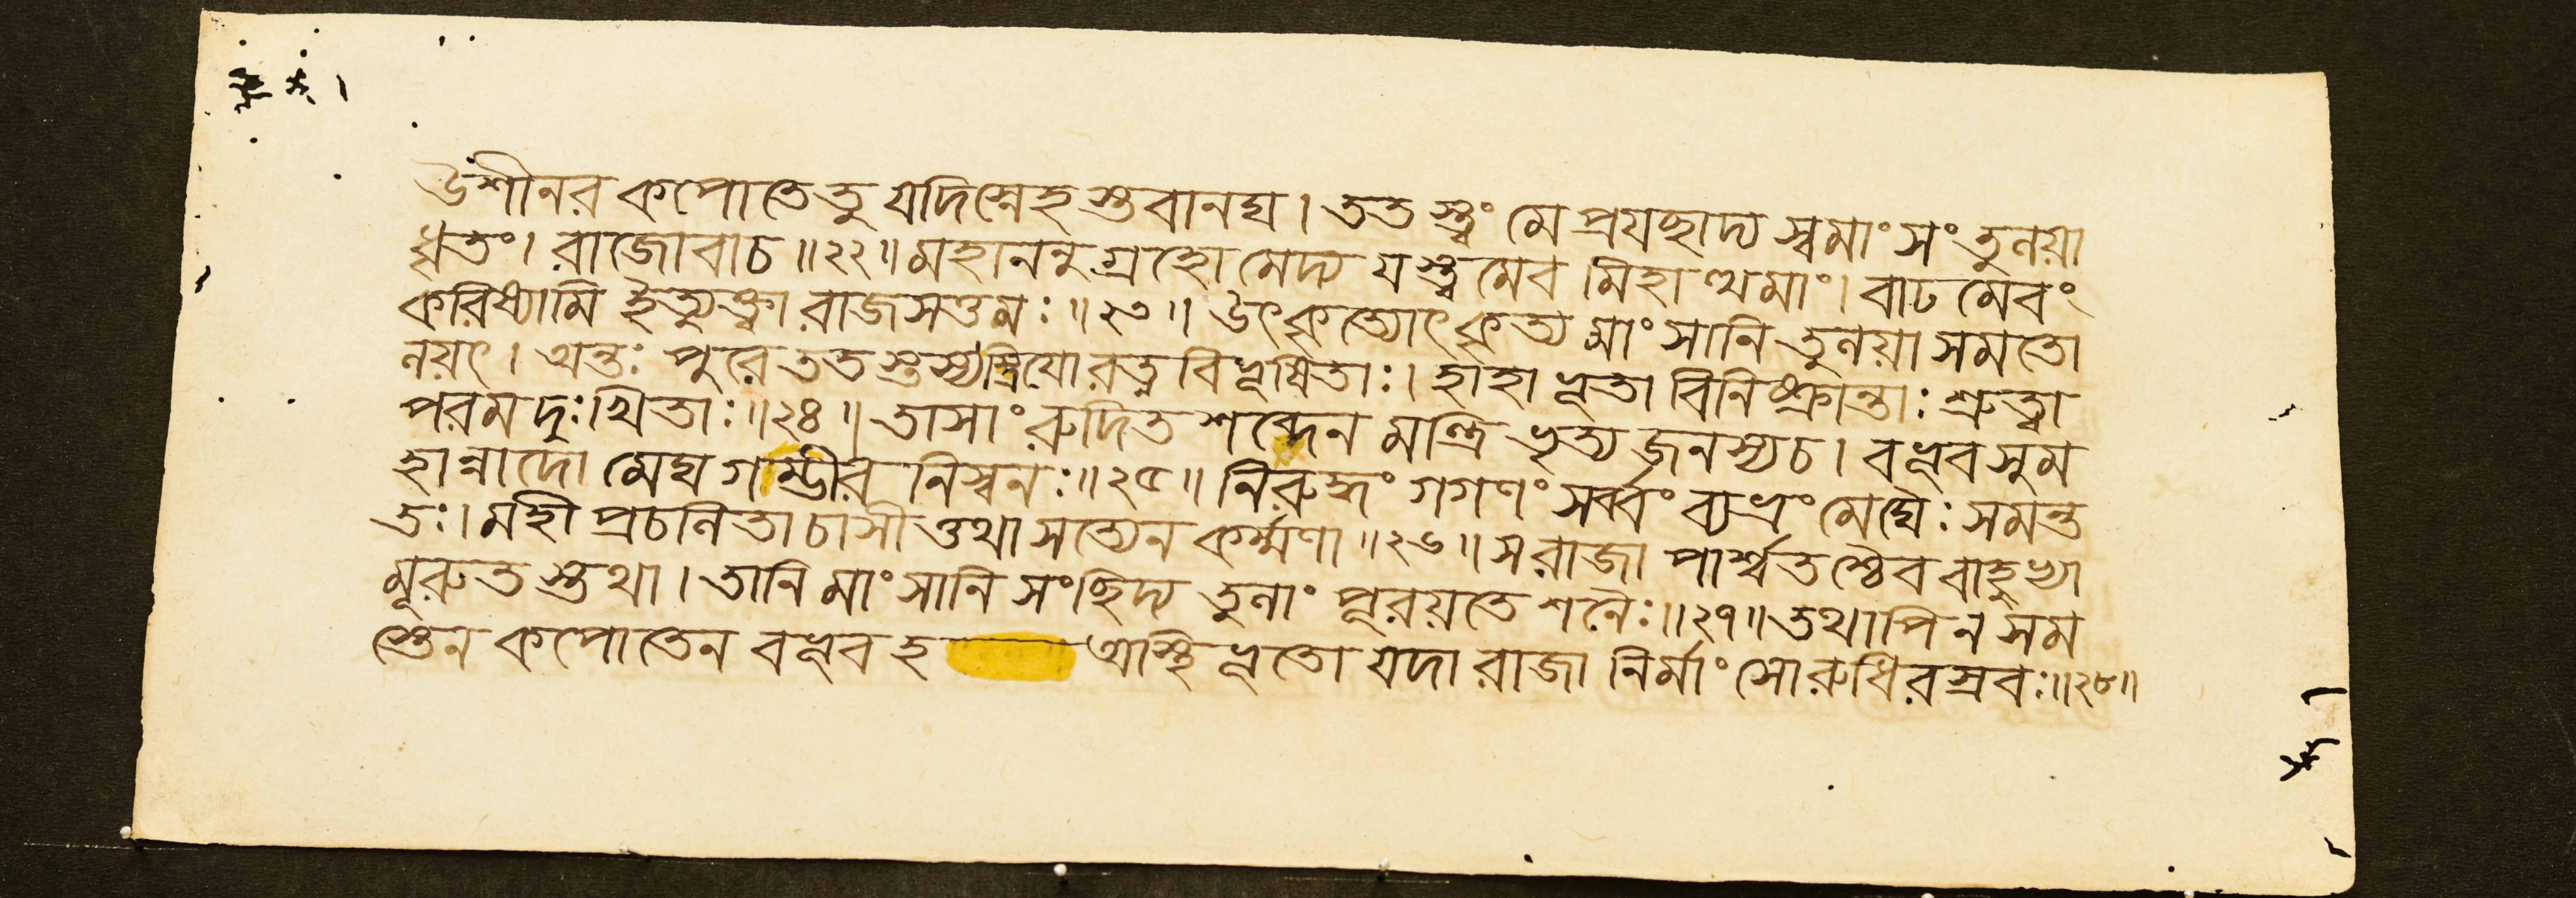 উশীনর কপোতে তু যদি স্নেহ স্তবানঘ। তত স্ত্বং মে প্রযচ্ছাদ্য স্বমাংসং তুনয়া
ধৃতং। রাজোবাচ॥২২॥ মহাননু গ্রহো মেদ্য যস্ত্বমেব মিহাত্থমাং। বাঢ মেবং
করিষ্যামি ইত্যুক্ত্বা রাজসত্তমঃ॥২৩॥ উৎকৃত্যোৎকৃত্য মাংসানি তুনয়া সমতো
নয়ৎ। অন্তঃপুরে ততস্তস্য স্ত্রিযোরত্ন বিভূষিতাঃ। হাহা ভূতা বিনিষ্ক্রান্তাঃ শ্রুত্বা
পরমদুঃখিতাঃ॥২৪॥ তাসাং রুদিত শব্দেন মন্ত্রি ভৃত্য জনস্যচ। বভূব সুম
হান্নাদো মেঘ গম্ভীর নিস্বনঃ॥২৫॥ নিরুদ্ধং গগণং সর্ব্বং ব্যভ্রং মেঘৈঃ সমন্ত
তঃ। মহী প্রচলিতা চাসীত্তথা সত্যেন কর্ম্মণা॥২৬॥ স রাজা পার্শ্বতশ্চৈব বাহুভ্যা
মূরুত স্তথা। তানি মাংসানি সংছিদ্য তুলাং পূরয়তে শনৈঃ॥২৭॥ তথাপি ন সম
স্তেন কপোতেন বভূব হ অস্থিভূতো যদা রাজা নির্মাংসোরুধিরস্রবঃ॥২৮॥